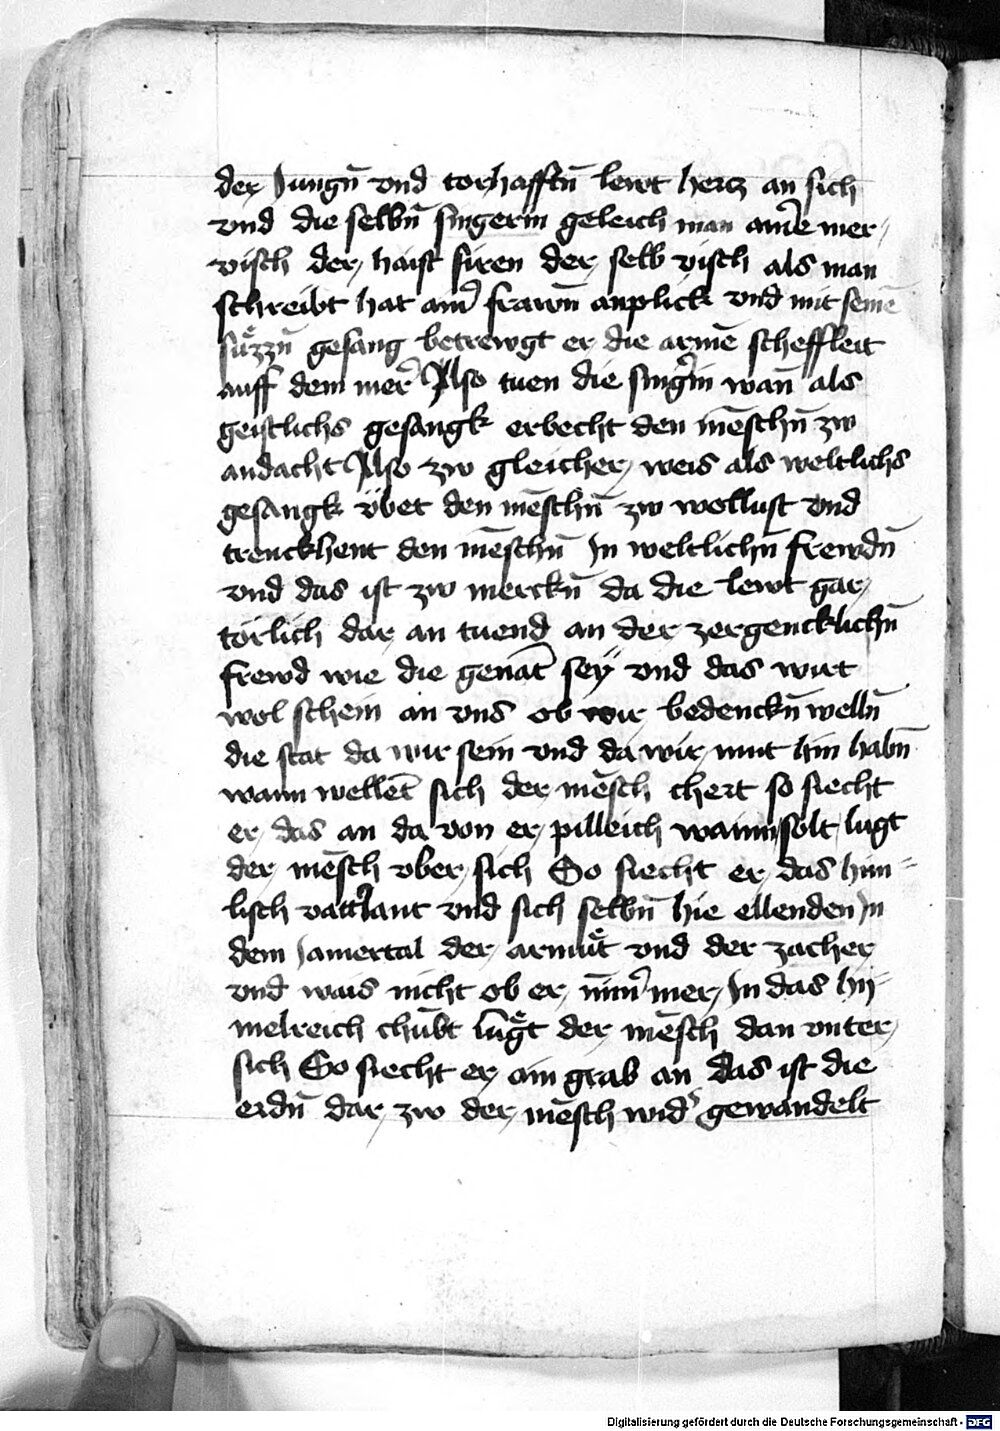 der Jungn̄ vnd torhafftn̄ lewt hertz an sich
vnd die selbn̄ singerin geleich man aim̄e mer
visch der haist siren der selb visch als man
schreibt hat aim̄ frawn̄ anplick vnd mit seinē
süzzn̄ gesang betrewgt er die armē scheffleit
auff dem mer Also tuen die singerin wan̄ als
geistlichs gesangk erbecht den mēschn̄ zw
andacht Also zw gleicher weis als weltlichs
gesangk übet den mēschn̄ zw wollust vnd
trenckhent den mēschn̄ In weltlichn̄ frewdn̄
vnd das ist zw merckn̄ da die lewt gar
törlich dar an tuend an der zergencklichn̄
frewd wie die genāt seÿ vnd das wirt
wol schein an vns ob wir bedenckn̄ welln̄
die stat da wir sein vnd da wir mut hin habn̄
wann wellet sich der mēsch chert so siecht
er das an da von er pilleich wainn solt lugt
der mēsch vber sich So siecht er das him=
lisch vatterlant vnd sich selbn̄ hie ellenden In
dem Jamertal der armüt vnd der zacher
vnd wais nicht ob er nim̄er mer In das hÿ=
melreich chūbt lüget der mēsch dan vnter
sich So siecht er ain grab an das ist die
erdn̄ dar zw der mēsch wider gewandelt
Digitalisierung gefördert durch die Deutsche Forschungsgemeinschaft - DFG